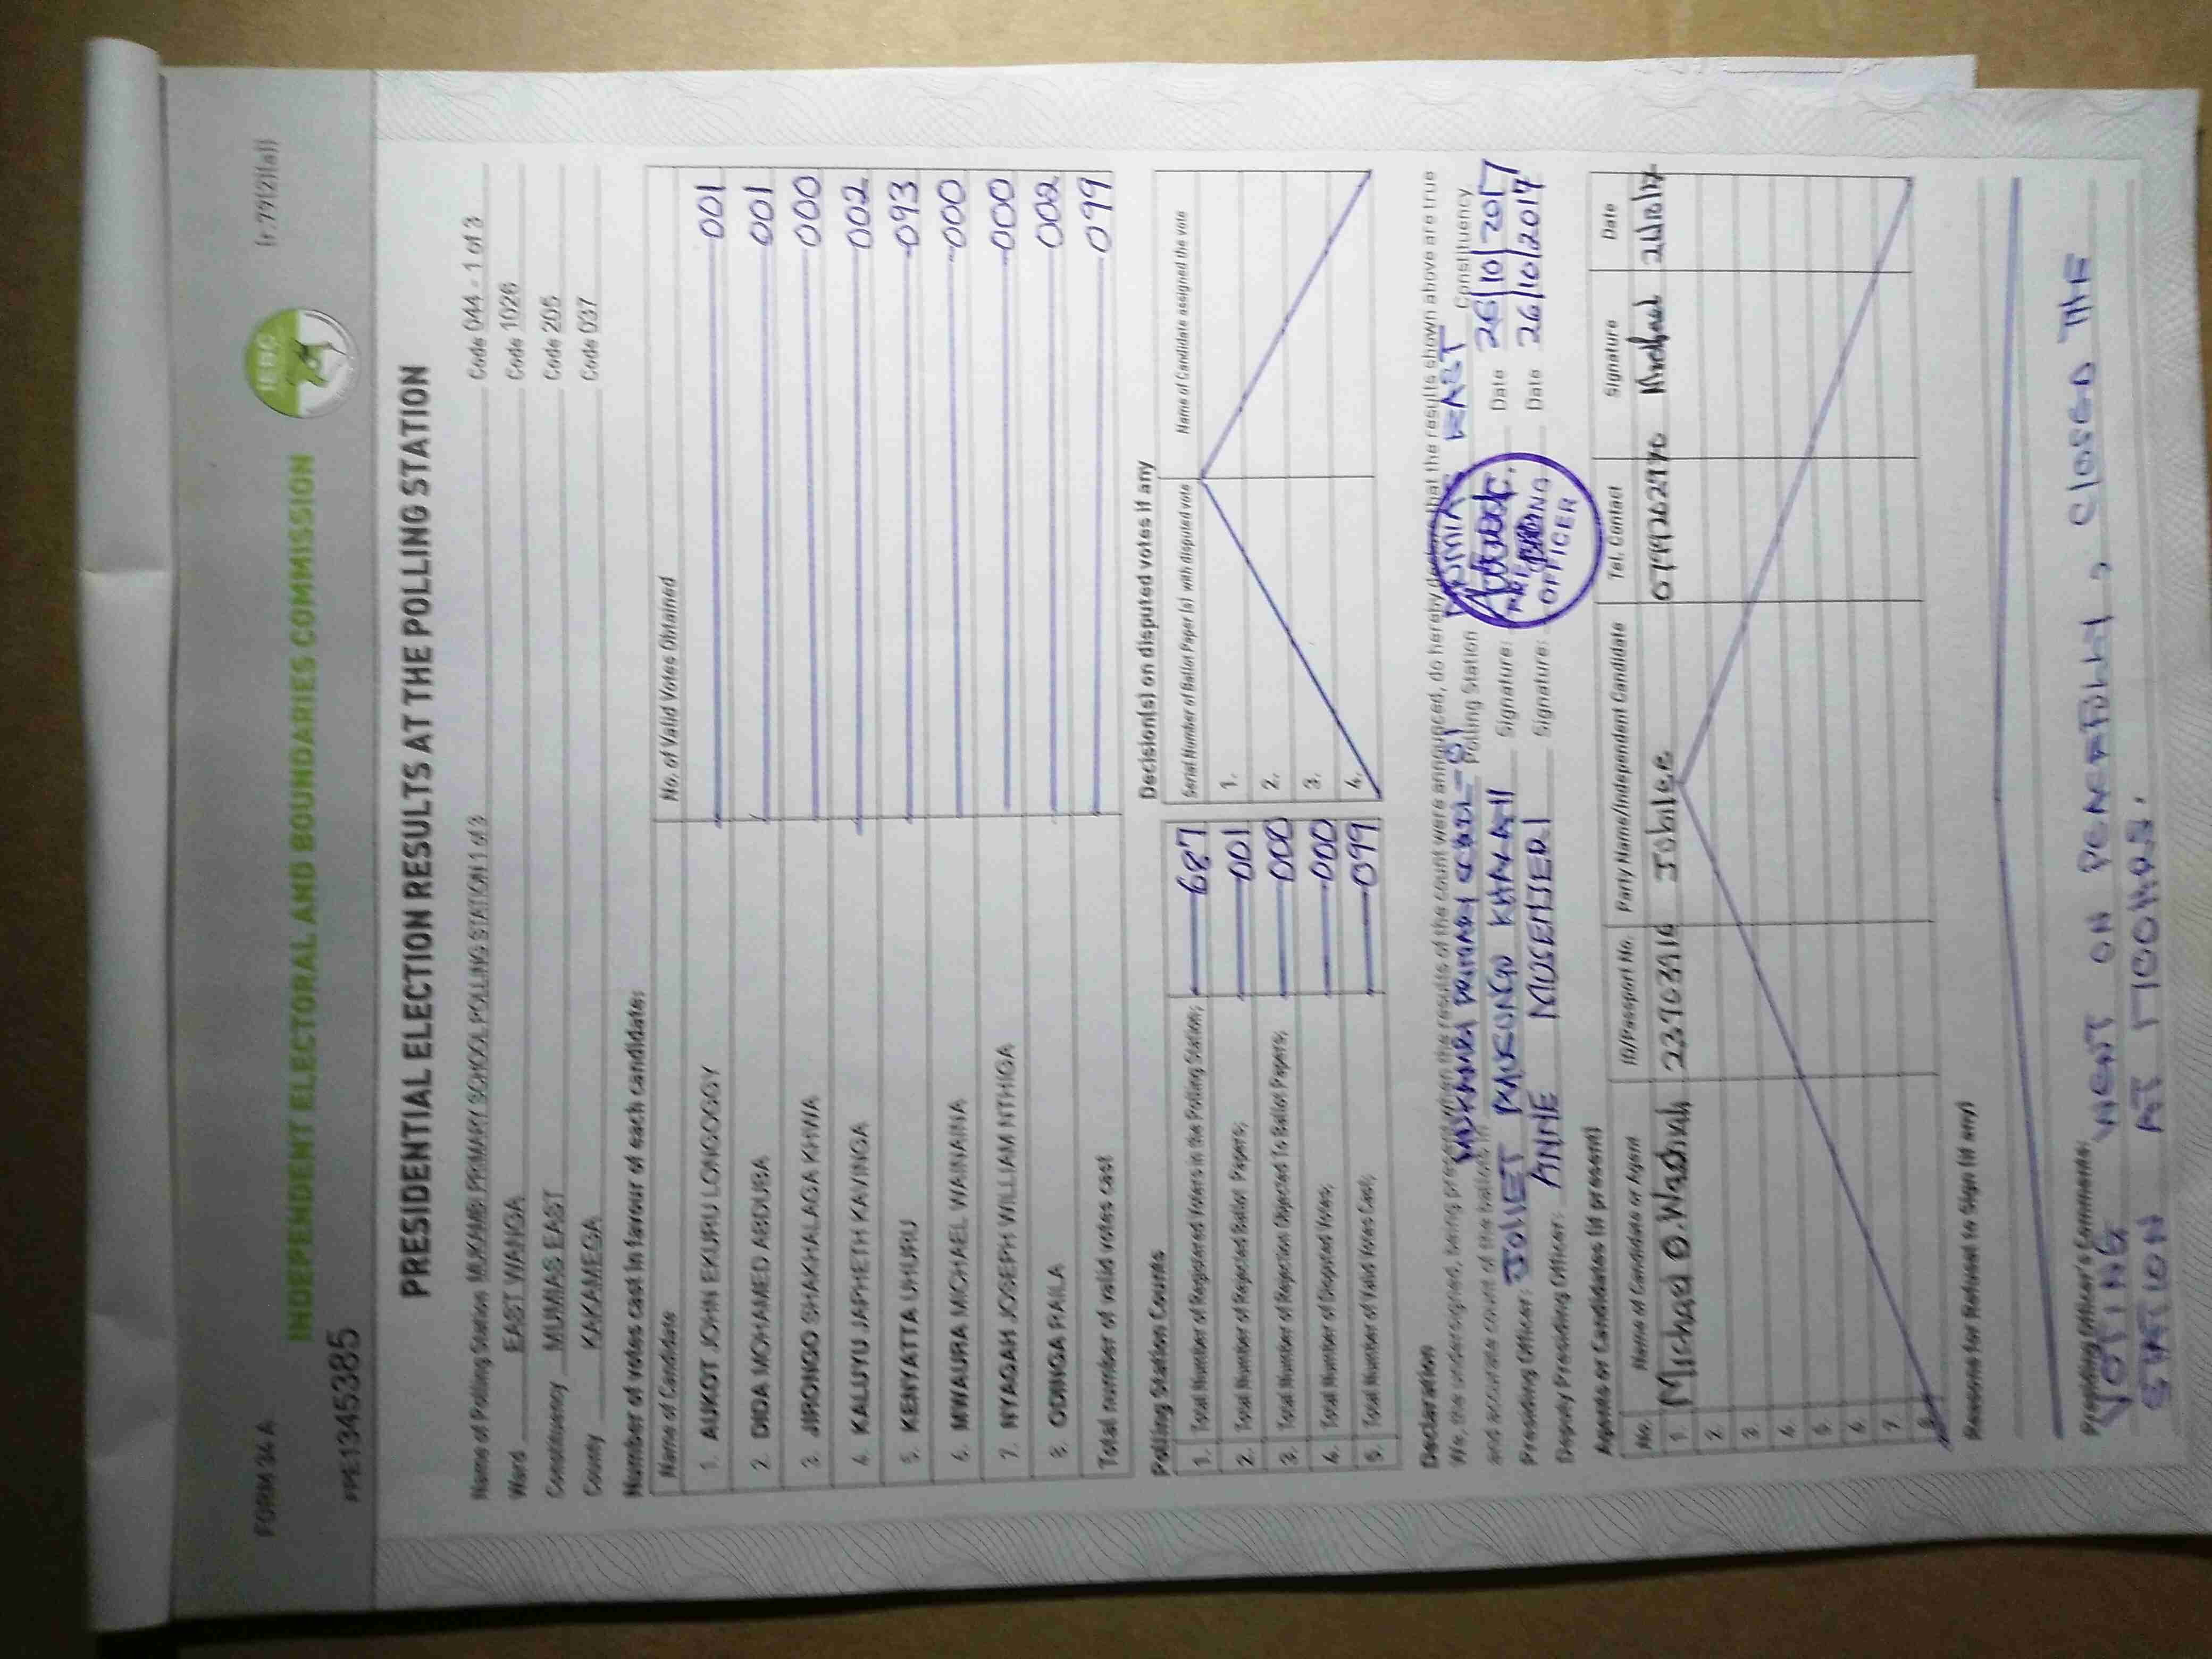 FORM 34 A
(r.79(2)(a))
IEBC
INDEPENDENT ELECTORAL AND BOUNDARIES COMMISSION
PPE1345385
PRESIDENTIAL ELECTION RESULTS AT THE POLLING STATION
Name of Polling Station MUKAMBI PRIMARY SCHOOL POLLING STATION 1 of 3 Code 044 - 1 of 3
Ward EAST WANGA Code 1026
Constituency MUMIAS EAST Code 205
County KAKAMEGA Code 037
Number of votes cast in favour of each candidate:
Name of Candidate No. of Valid Votes Obtained
1. AUKOT JOHN EKURU LONGOGGY 001
2. DIDA MOHAMED ABDUBA 001
3. JIRONGO SHAKHALAGA KHWA 000
4. KALUYU JAPHETH KAVINGA 002
5. KENYATTA UHURU 093
6. MWAURA MICHAEL WAINAINA 000
7. NYAGAH JOSEPH WILLIAM NTHIGA 000
8. ODINGA RAILA 002
Total number of valid votes cast 099
Polling Station Counts
1. Total Number of Registered Voters in the Polling Station; 687
2. Total Number of Rejected Ballot Papers; 001
3. Total Number of Rejection Objected To Ballot Papers; 000
4. Total Number of Disputed Votes; 000
5. Total Number of Valid Votes Cast; 099
Decision(s) on disputed votes if any
Serial Number of Ballot Paper (s) with disputed vote Name of Candidate assigned the vote
1.
2.
3.
4.
Declaration
We, the undersigned, being present when the results of the count were announced, do hereby declare that the results shown above are true
and accurate count of the ballots in Polling Station MUMIAS EAST Constituency
Presiding Officer: JOLIET Signature: Date 26/10/2017
Deputy Presiding Officer: ANNE Signature: Date 26/10/2017
PRESIDING
OFFICER
Agents or Candidates (if present)
No. Name of Candidate or Agent ID/Passport No. Party Name/Independent Candidate Tel. Contact Signature Date
1. Michael O. Jubilee
2.
3.
4.
5.
6.
7.
8.
Reasons for Refusal to Sign (if any)
Presiding Officer's Comments:
VOTING WENT ON PEACEFULLY, CLOSED THE
STATION AT 1700HRS.